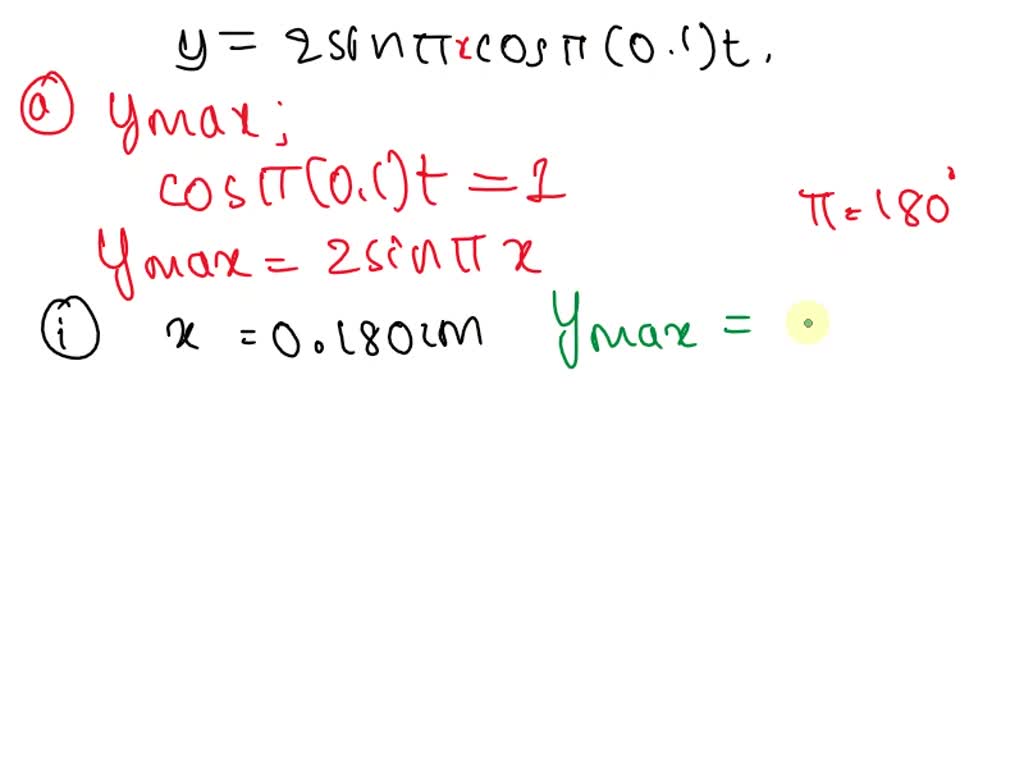 y = 2sinπxcosπ(0.1)t.
ⓐ ymax;
cosπ(0.1)t = 1
π = 180°
ymax = 2sinπx
ⓘ x = 0.180cm ymax =